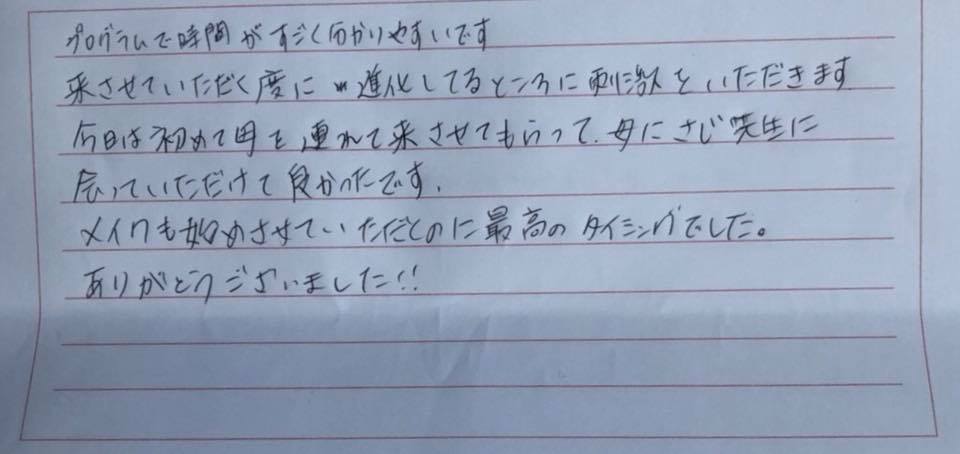 プログラムで時間がすごく分かりやすいです
来させていただく度に進化してるところに刺激をいただきます
今日は初めて母を連れて来させてもらって、母にさじ先生に
会っていただけて良かったです。
メイクも始めさせていただくのに最高のタイミングでした。
ありがとうございました!!